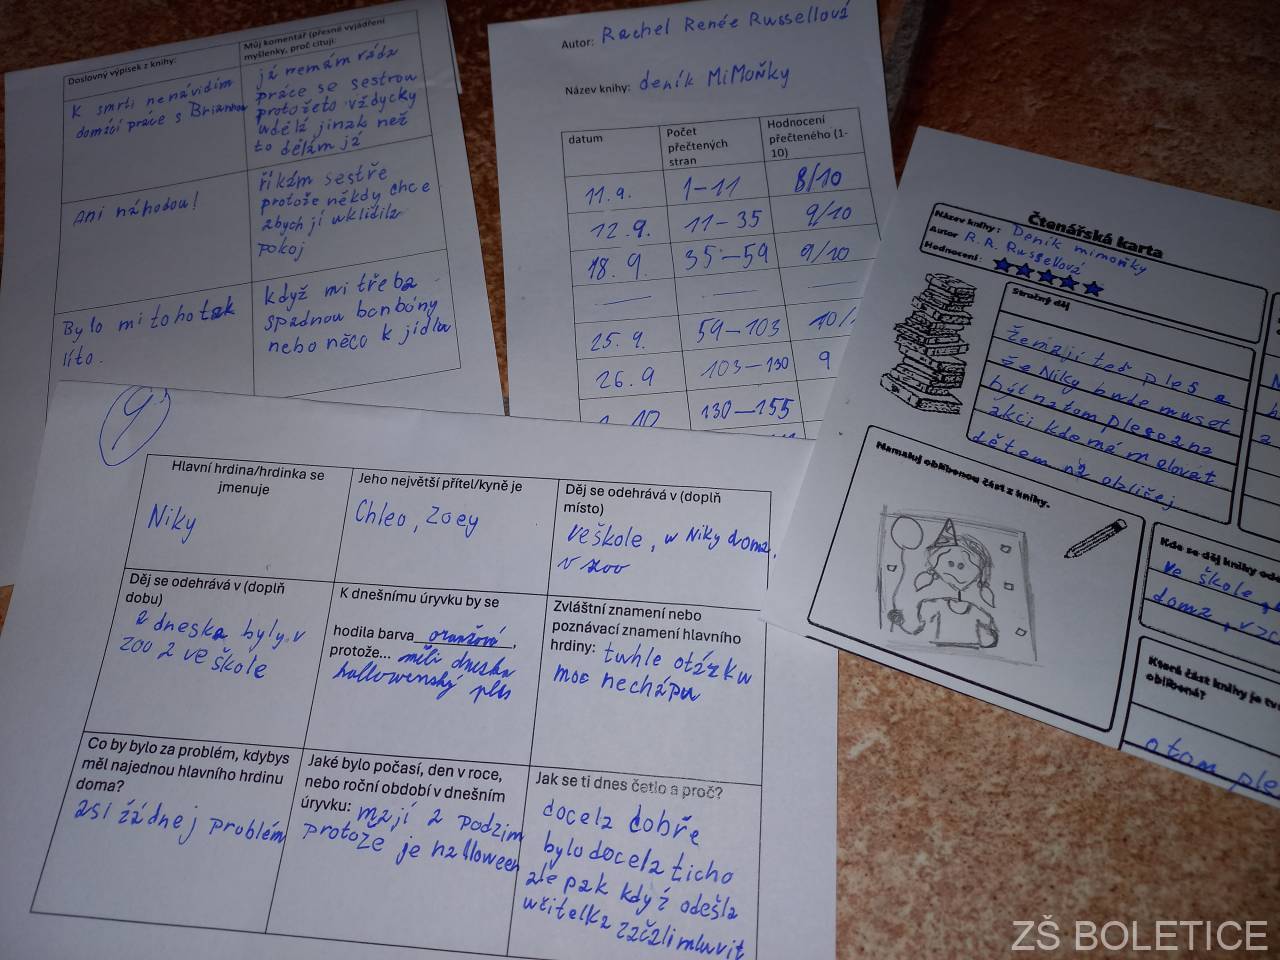 Doslovný výpisek z knihy:
Můj komentář (přesné vyjádření
myšlenky, proč cituji:
K smrti nenávidím
domácí práce s Briannou
já nemám ráda
práce se sestrou
protožeto vždycky
udělá jinak než
to dělám já
Ani náhodou!
říkám sestře
protože někdy chce
abych jí uklidila
pokoj
Bylo mi toho tak
líto.
když mi třeba
spadnou bonbóny
nebo něco k jídlu
Autor: Rachel Renée Russellová
Název knihy: deník MiMoňky
datum
Počet
přečtených
stran
Hodnocení
přečteného (1-
10)
11.9. 1–11 8/10
12.9. 11–35 9/10
18.9. 35–59 9/10
25.9. 59–103 10/
26.9 103–130 9
130–155
Čtenářská karta
Název knihy: Deník mimoňky
Autor R.A. Russellová
Hodnocení:
Stručný děj
ted ples a
že Niky bude muset
být na tom plese a na
akci kde má malovat
dětem na obličej
Namaluj oblíbenou část z knihy.
Kde se děj knihy ode
ve škole,
doma, v zo
Která část knihy je tv
oblíbená?
o tom ple
9.)
Hlavní hrdina/hrdinka se
jmenuje
Niky
Jeho největší přítel/kyně je
Chleo, Zoey
Děj se odehrává v (doplň
místo)
ve škole, u Niky doma,
v zoo
Děj se odehrává v (doplň
dobu)
a dneska byly v
zoo a ve škole
K dnešnímu úryvku by se
hodila barva oranžová,
protože... měli dneska
hallowenský ples
Zvláštní znamení nebo
poznávací znamení hlavního
hrdiny: tuhle otázku
moc nechápu
Co by bylo za problém, kdybys
měl najednou hlavního hrdinu
doma?
asi žádnej problém
Jaké bylo počasí, den v roce,
nebo roční období v dnešním
úryvku: mají a podzim
protože je halloween
Jak se ti dnes četlo a proč?
docela dobře
bylo docela ticho
ale pak když odešla
učitelka začali mluvit
ZŠ BOLETICE